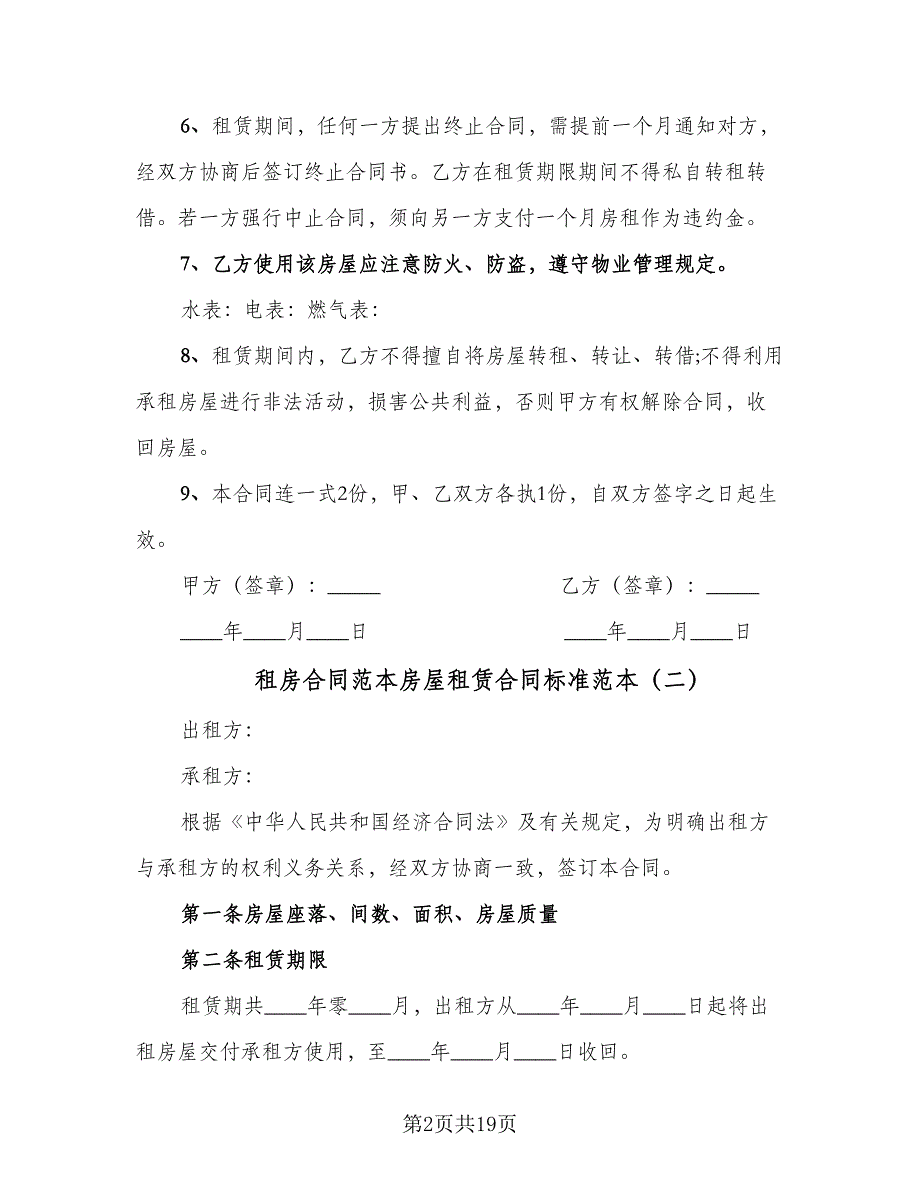 6、租赁期间，任何一方提出终止合同，需提前一个月通知对方，
经双方协商后签订终止合同书。乙方在租赁期限期间不得私自转租转
借。若一方强行中止合同，须向另一方支付一个月房租作为违约金。
7、乙方使用该房屋应注意防火、防盗，遵守物业管理规定。
水表：电表：燃气表：
8、租赁期间内，乙方不得擅自将房屋转租、转让、转借;不得利用
承租房屋进行非法活动，损害公共利益，否则甲方有权解除合同，收
回房屋。
9、本合同连一式2份，甲、乙双方各执1份，自双方签字之日起生
效。
甲方（签章）：_____ 乙方（签章）：_____
____年____月____日 ____年____月____日
租房合同范本房屋租赁合同标准范本（二）
出租方：
承租方：
根据《中华人民共和国经济合同法》及有关规定，为明确出租方
与承租方的权利义务关系，经双方协商一致，签订本合同。
第一条房屋座落、间数、面积、房屋质量
第二条租赁期限
租赁期共____年零____月，出租方从____年____月____日起将出
租房屋交付承租方使用，至____年____月____日收回。
第2页共19页